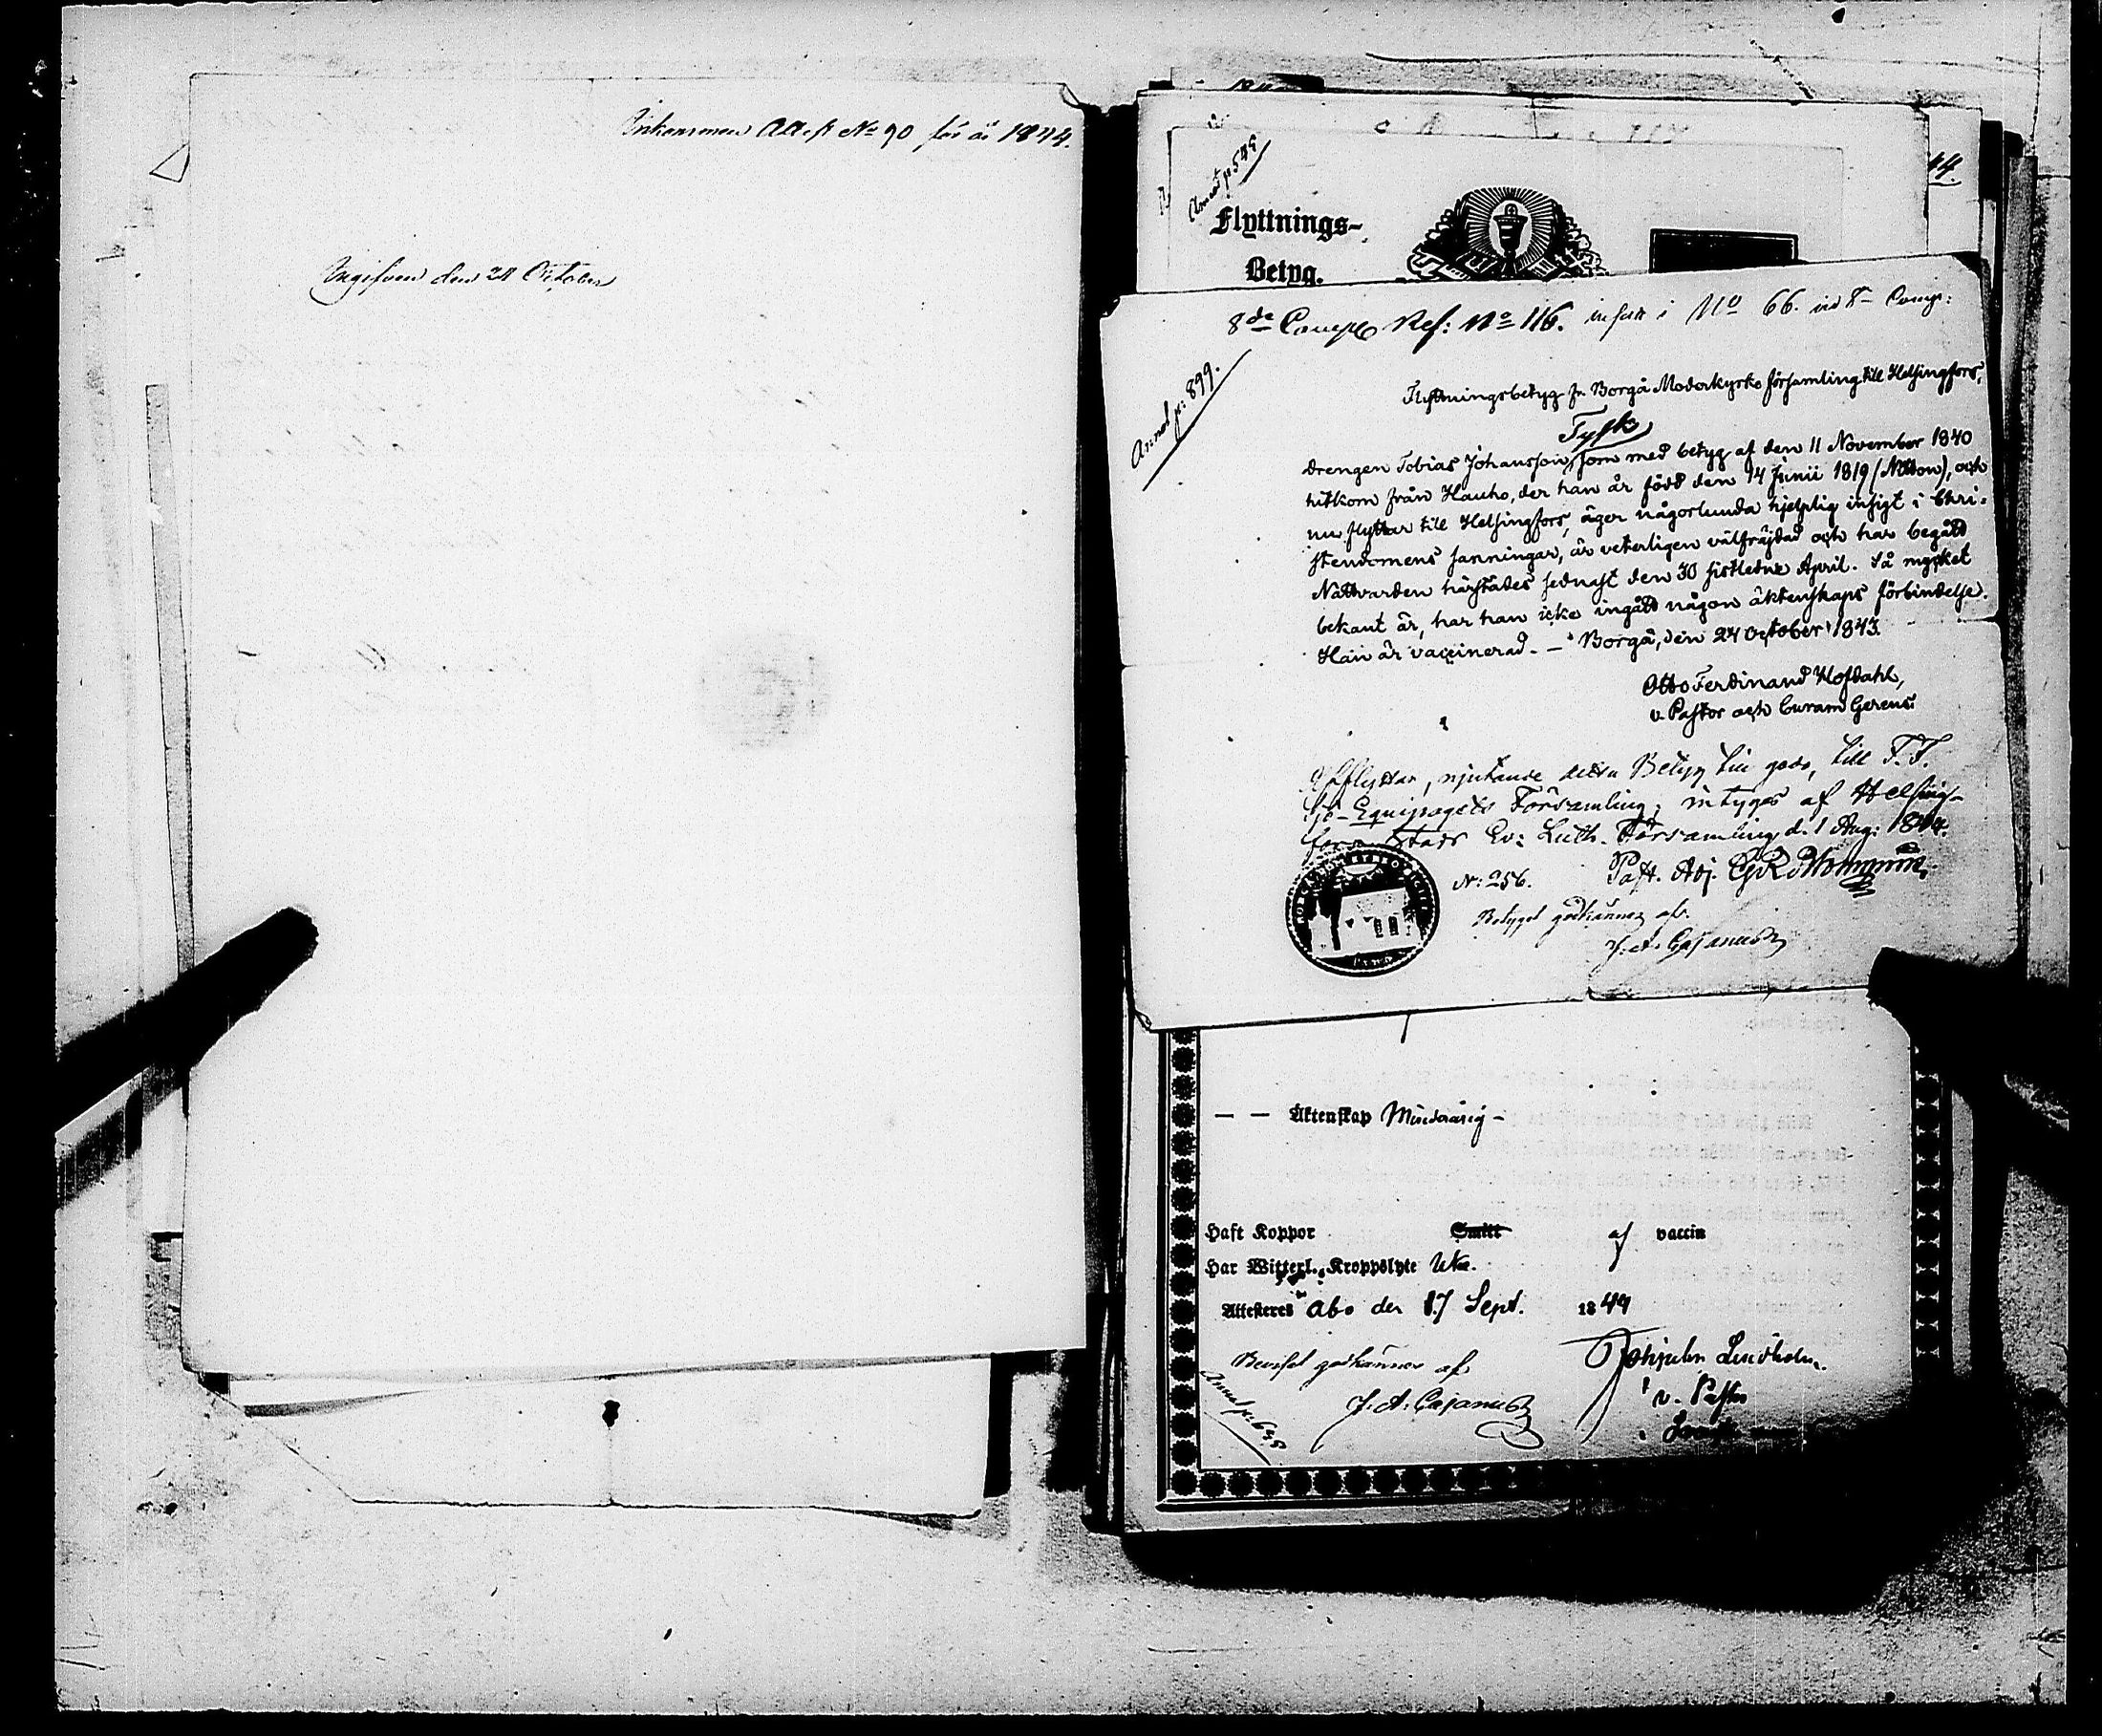 Inkommen Attest No 90 för år 1844.
Ingifven den 24 October
44.
Annot p 545
Flyttnings-
Betyg.
8de Comp Ref: No 116. infört i No 66. vid 8 Comp:
Annot p: 899.
Flyttningsbetyg fr. Borgå Moderkyrko församling till Helsingfors,
Tysk
Drengen Tobias Johansson, som med betyg af den 11 November 1840
hitkom från Hauho, der han är född den 14 Junii 1819 (Nitton), och
nu flyttar till Helsingfors, äger någorlunda hjelplig insigt i Chri-
stendomens sanningar, är veterligen välfräjdad och har begått
Nattvarden härstädes sednast den 30 sistledne April. Så mycket
bekant är, har han icke ingått någon äktenskaps förbindelse.
Han är vaccinerad. – Borgå, den 24 October 1843.
Otto Ferdinand Hofdahl,
v. Pastor och Curam Gerens.
Afflyttar, njutande detta Betyg till godo, till F. F.
Sjö-Equipagets Församling; intygas af Helsing-
fors Stads Ev: Luth. Församling d. 1 Aug: 1844.
N: 256. Past. Adj.
Betyget godkännes af
J. A. Cajanus
— — Äktenskap Minderårig –
Haft Koppor Smitt af vaccin
Har Witterl. Kroppslyte Utan.
Attesteres Åbo den 17 Sept. 1844
Beviset godkännes af Lindholm
J. A. Cajanus v. Pastor
Annot p: 635